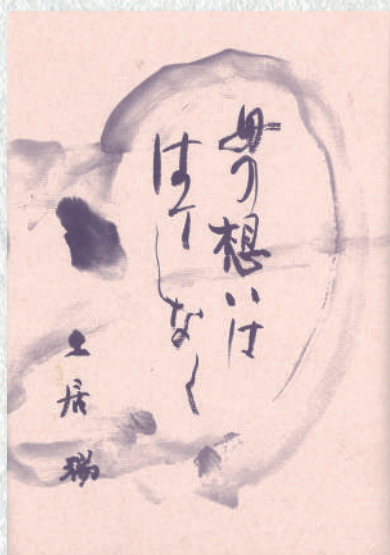 母の想いは
はてしなく
土居瑞